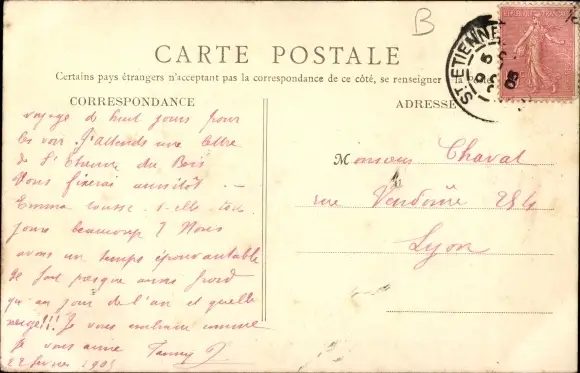 B
REPUBLIQUE FRANÇAISE
ST ETIENNE
05
CARTE POSTALE
Certains pays étrangers n'acceptant pas la correspondance de ce côté, se renseigner à la
CORRESPONDANCE
ADRESSE
voyage de huit jours pour
les voir. J'attends une lettre
de St Etienne du Bois
Vous fixerai aussitôt -
Emma tousse-t-elle tou-
jours beaucoup ? Nous
avons un temps épouvantable
Il fait presque aussi froid
qu'au jour de l'an et quelle
neige!!! Je vous embrasse comme
Je vous aime Fanny
22 février 1905
Monsieur Chavat
rue Vendôme 254
Lyon